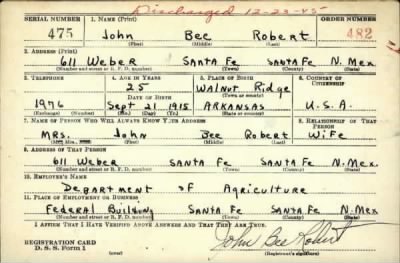 Discharged 12-23-45
SERIAL NUMBER 1. NAME (Print) ORDER NUMBER
475 John Bee Robert 482
(First) (Middle) (Last)
2. ADDRESS (Print)
611 Weber Santa Fe Santa Fe N. Mex
(Number and street or R. F. D. number) (Town) (County) (State)
3. TELEPHONE 4. AGE IN YEARS 5. PLACE OF BIRTH 6. COUNTRY OF CITIZENSHIP
25 Walnut Ridge
DATE OF BIRTH (Town or county)
1976 Sept 21 1915 Arkansas U.S.A.
(Exchange) (Number) (Mo.) (Day) (Yr.) (State or country)
7. NAME OF PERSON WHO WILL ALWAYS KNOW YOUR ADDRESS 8. RELATIONSHIP OF THAT PERSON
Mrs. John Bee Robert Wife
(Mr., Mrs., Miss) (First) (Middle) (Last)
9. ADDRESS OF THAT PERSON
611 Weber Santa Fe Santa Fe N. Mex
(Number and street or R. F. D. number) (Town) (County) (State)
10. EMPLOYER'S NAME
Department of Agriculture
11. PLACE OF EMPLOYMENT OR BUSINESS
Federal Building Santa Fe Santa Fe N. Mex
(Number and street or R. F. D. number) (Town) (County) (State)
I AFFIRM THAT I HAVE VERIFIED ABOVE ANSWERS AND THAT THEY ARE TRUE.
REGISTRATION CARD
D. S. S. Form 1
John Bee Robert